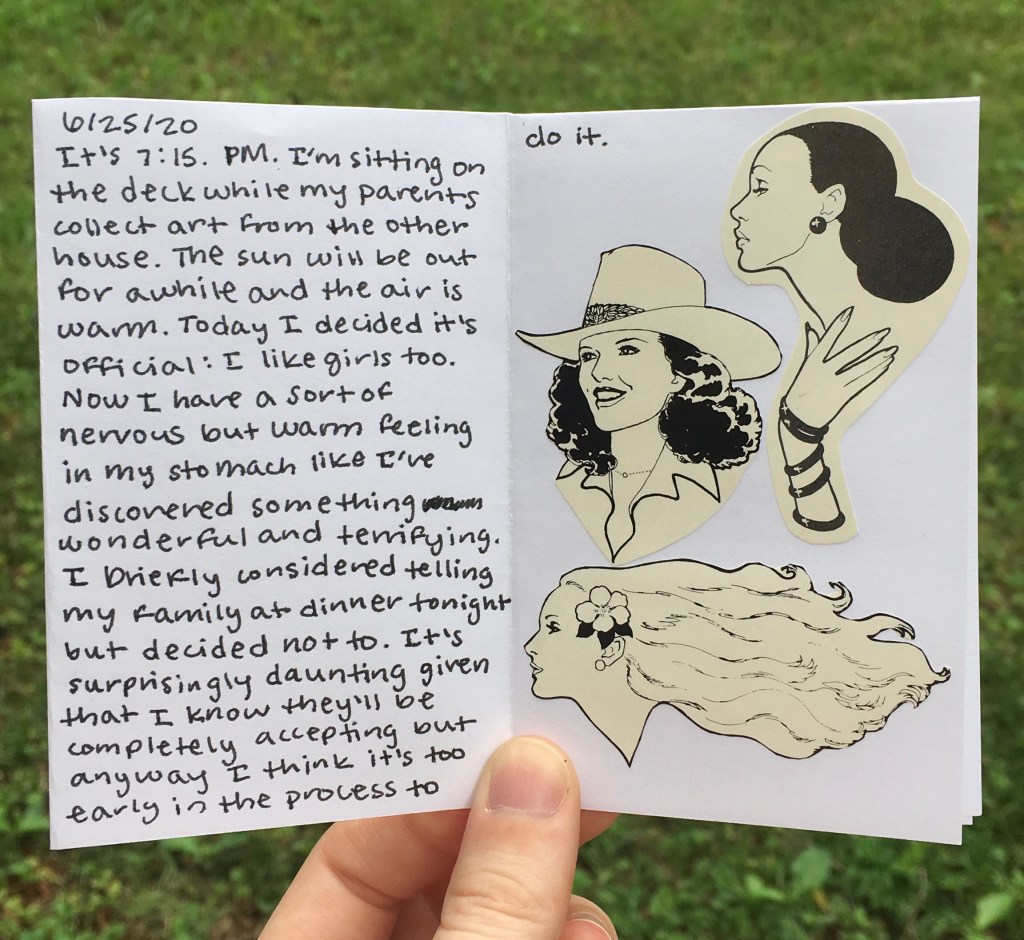 6/25/20
It's 7:15. PM. I'm sitting on
the deck while my parents
collect art from the other
house. The sun will be out
for awhile and the air is
warm. Today I decided it's
official: I like girls too.
Now I have a sort of
nervous but warm feeling
in my stomach like I've
discovered something
wonderful and terrifying.
I briefly considered telling
my family at dinner tonight
but decided not to. It's
surprisingly daunting given
that I know they'll be
completely accepting but
anyway I think it's too
early in the process to
do it.